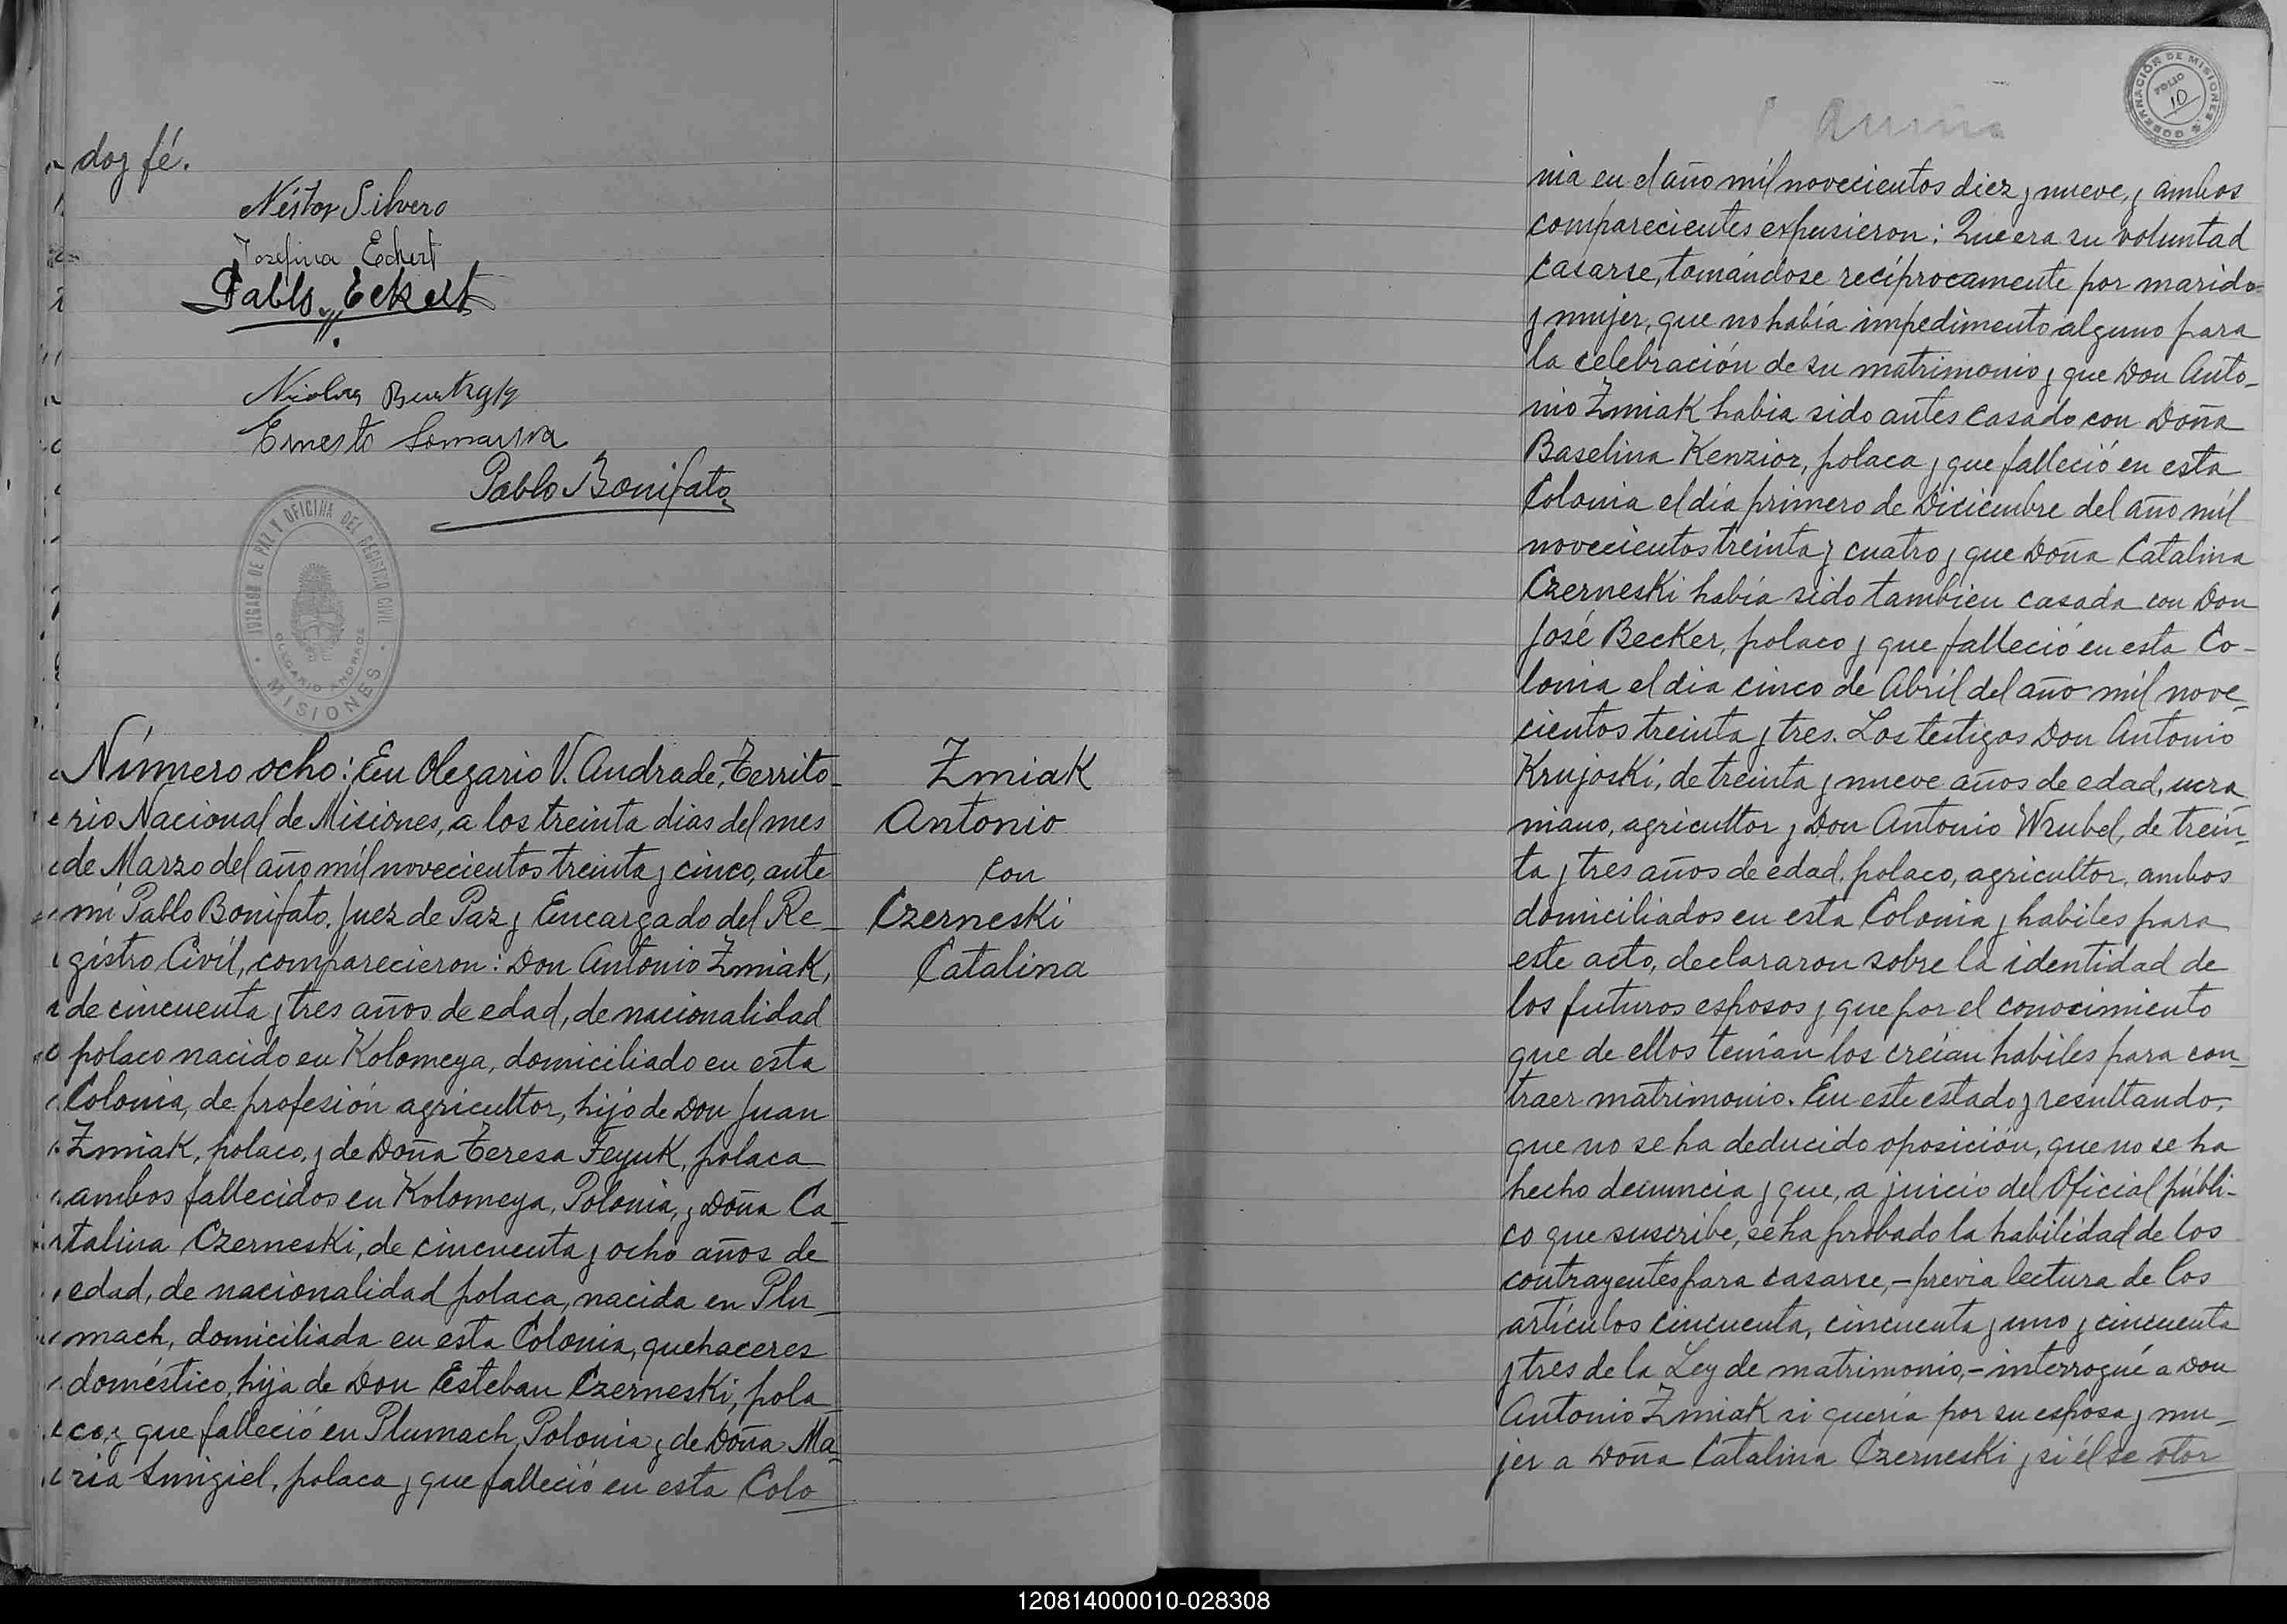 doy fé.
Néstor Silvero
Josefina Eckert
Pablo Eckert
Nicolas
Ernesto
Pablo Bonifato
JUZGADO DE PAZ Y OFICINA DEL REGISTRO CIVIL
OLEGARIO ANDRADE
MISIONES
Número ocho: En Olegario V. Andrade, Territo-
rio Nacional de Misiones, a los treinta dias del mes
de Marzo del año mil novecientos treinta y cinco, ante
mi Pablo Bonifato, Juez de Paz y Encargado del Re-
gistro Civil, comparecieron: Don Antonio Zmiak,
de cincuenta y tres años de edad, de nacionalidad
polaco nacido en Kolomeya, domiciliado en esta
Colonia, de profesión agricultor, hijo de Don Juan
Zmiak, polaco, y de Doña Teresa Feyuk, polaca
ambos fallecidos en Kolomeya, Polonia, y Doña Ca-
talina Czerneski, de cincuenta y ocho años de
edad, de nacionalidad polaca, nacida en Plu-
mach, domiciliada en esta Colonia, quehaceres
doméstico, hija de Don Esteban Czerneski, pola-
co, y que falleció en Plumach, Polonia y de Doña Ma-
ria Smigiel, polaca y que falleció en esta Colo
Zmiak
Antonio
con
Czerneski
Catalina
GOBERNACIÓN DE MISIONES
FOLIO
10
nia en el año mil novecientos diez y nueve, y ambos
comparecientes expusieron: Que era su voluntad
casarse, tomándose recíprocamente por marido
y mujer, que no había impedimento alguno para
la celebración de su matrimonio y que Don Anto-
nio Zmiak habia sido antes casado con Doña
Baselina Kenzior, polaca y que falleció en esta
Colonia el día primero de Diciembre del año mil
novecientos treinta y cuatro y que Doña Catalina
Czerneski había sido tambien casada con Don
José Becker, polaco y que falleció en esta Co-
lonia el dia cinco de Abril del año mil nove-
cientos treinta y tres. Los testigos Don Antonio
Krujoski, de treinta y nueve años de edad, ucra
niano, agricultor y Don Antonio Wrubel, de trein-
ta y tres años de edad, polaco, agricultor, ambos
domiciliados en esta Colonia y habiles para
este acto, declararon sobre la identidad de
los futuros esposos y que por el conocimiento
que de ellos tenían los creían habiles para con-
traer matrimonio. En este estado y resultando,
que no se ha deducido oposición, que no se ha
hecho denuncia y que, a juicio del Oficial públi-
co que suscribe, se ha probado la habilidad de los
contrayentes para casarse, - previa lectura de los
artículos cincuenta, cincuenta y uno y cincuenta
y tres de la Ley de matrimonio, - interrogué a Don
Antonio Zmiak si quería por su esposa y mu-
jer a Doña Catalina Czerneski y si él se otor
120814000010-028308